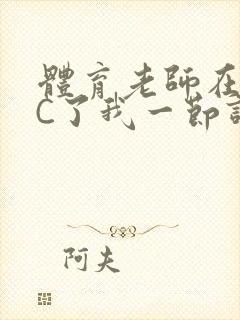 體育老師在
C了我一節
阿夫